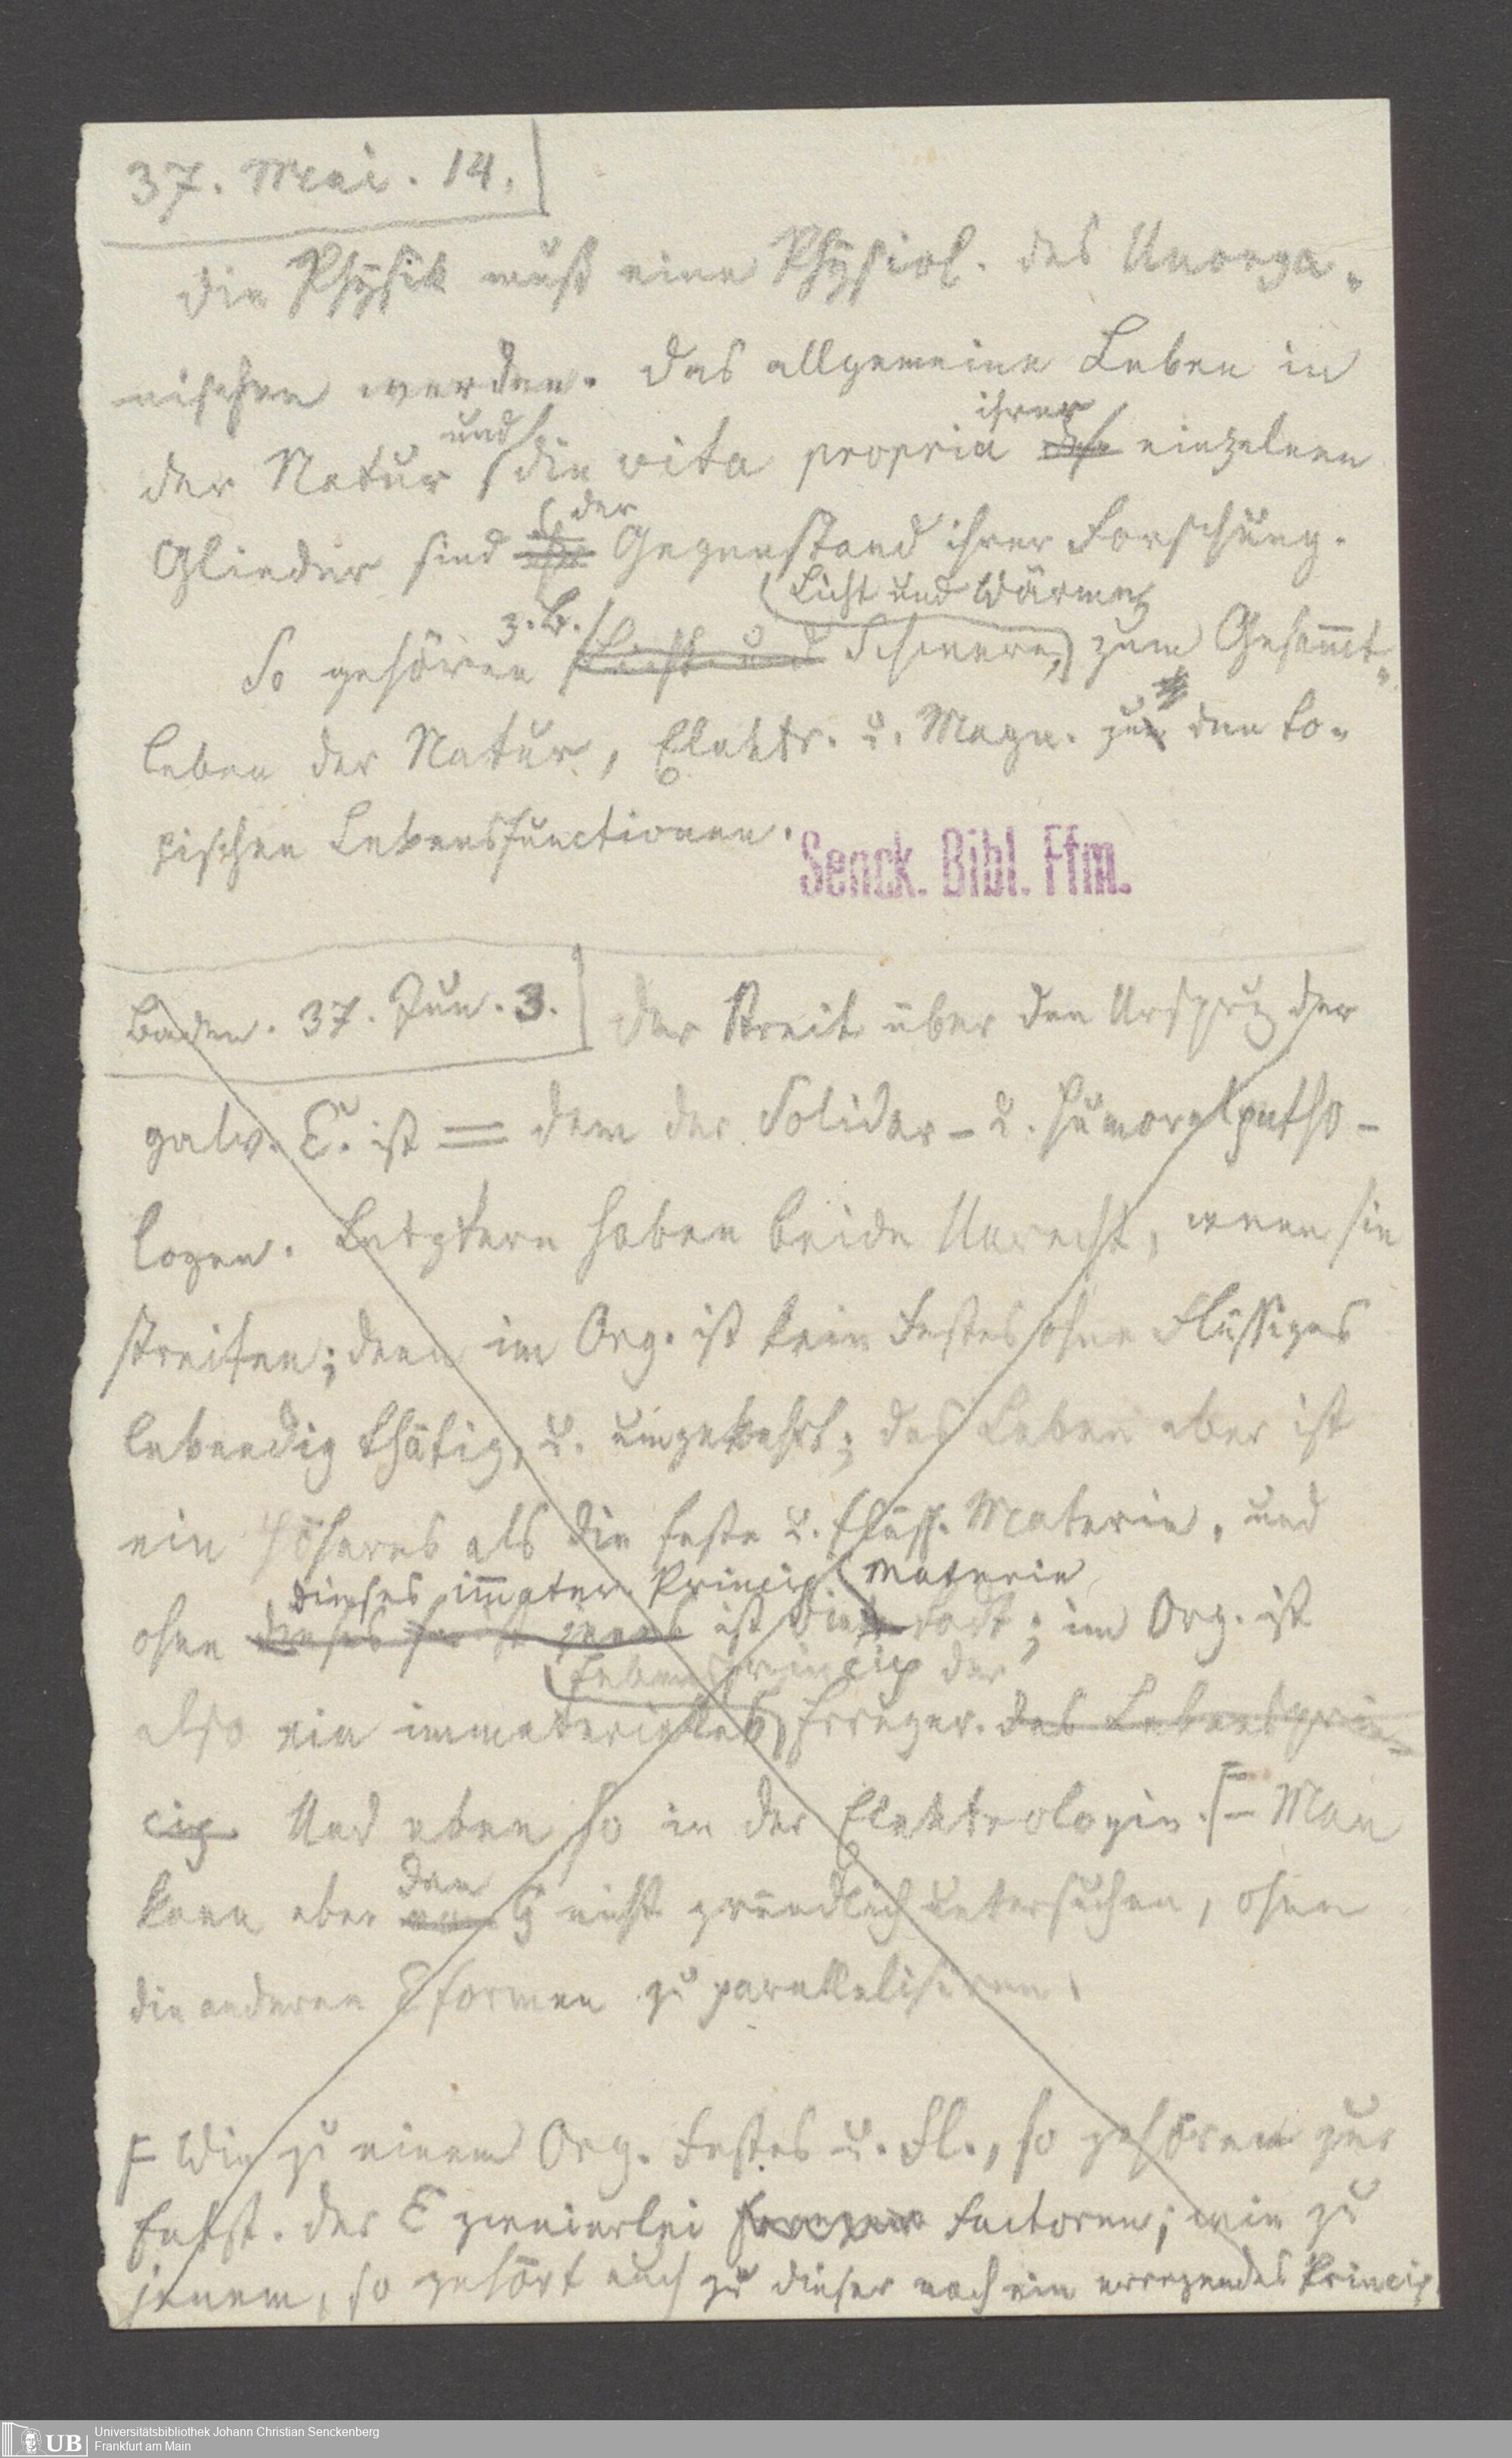 37. Mai. 14.
Die Physik muß eine Physiol. des Unorga-
nischen werden. Das allgemeine Leben in
der Natur und die vita propria ihrer einzelnen
Glieder sind der Gegenstand ihrer Forschung.
So gehören z. B. Licht und Schwere, Licht und Wärme, zum Gesam̄t-
leben der Natur, Elektr. u. Magn. zu den to-
pischen Lebensfunctionen.
Senck. Bibl. Ffm.
Baden. 37. Jun. 3. Der Streit über den Urspr̄g der
galv. E. ist = dem der Solidar- u. Humoralpatho-
logen. Letztere haben beide Unrecht, wenn sie
streiten; denn im Org. ist kein Festes ohne Flüssiges
lebendig thätig, u. umgekehrt; das Leben aber ist
ein Höheres als die feste u. flüss. Materie, und
dieses im̄ater. Princip Materie
ohne dieses ist jenes ist die todt; im Org. ist
Lebensprincip der
also ein immaterielles Erreger. des Lebensprin-
cip Und eben so in der Elektrologie. F– Man
den
kann aber G nicht gründlich untersuchen, ohne
die anderen Eformen zu parallelisiren.
F Wie zu einem Org. Festes u. Fl., so gehören zur
Entst. der E zweierlei Factoren; wie zu
jenem, so gehört auch zu dieser noch ein erregendes Princip
Universitätsbibliothek Johann Christian Senckenberg
Frankfurt am Main
UB